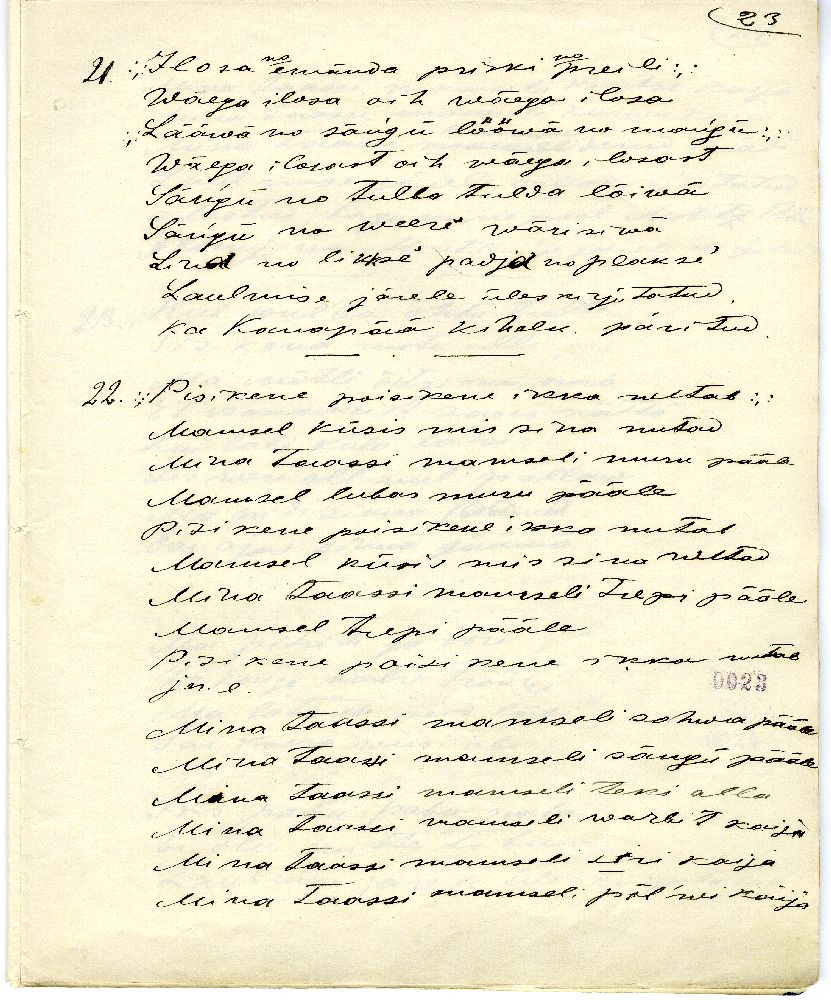 23
21. :,: Ilosa no emända priski no preili :,:
Wäega ilosa oih wäega ilosa
:,: Lääwä no sängü lööwä no mängü :,:
Wäega ilosast oih wäega ilosast
Sängü no tulba tulda lõiwä
Sängü no weere' wärisiwä
Lina no likse' padja no plakse'
Laulmise järele üles kirjutatud.
Ka Kanapää kihelk. päritud.
22. :,: Pisikene poisikene ikka nuttab :,:
Mamsel küsis mis sina nutad
Mina taassi mamseli muru pääle
Mamsel lubas muru pääle
Pisikene poisikene ikka nutab
Mamsel küsis mis sina nuttad
Mina taassi mamseli trepi pääle
Mamsel trepi pääle
Pisikene poisikene ikka nutab
jn. e.
0023
Mina taassi mamseli sohwa pääle
Mina taassi mamseli sängü pääle
Mina taassi mamseli teki alla
Mina taassi mamseli warb't kaija
Mina taassi mamseli kaija
Mina taassi mamseli põl'wi käijä